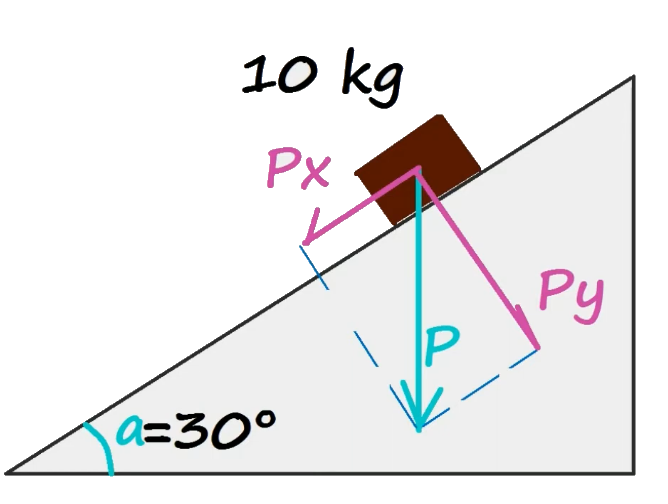 10 kg
Px
Py
P
a=30°